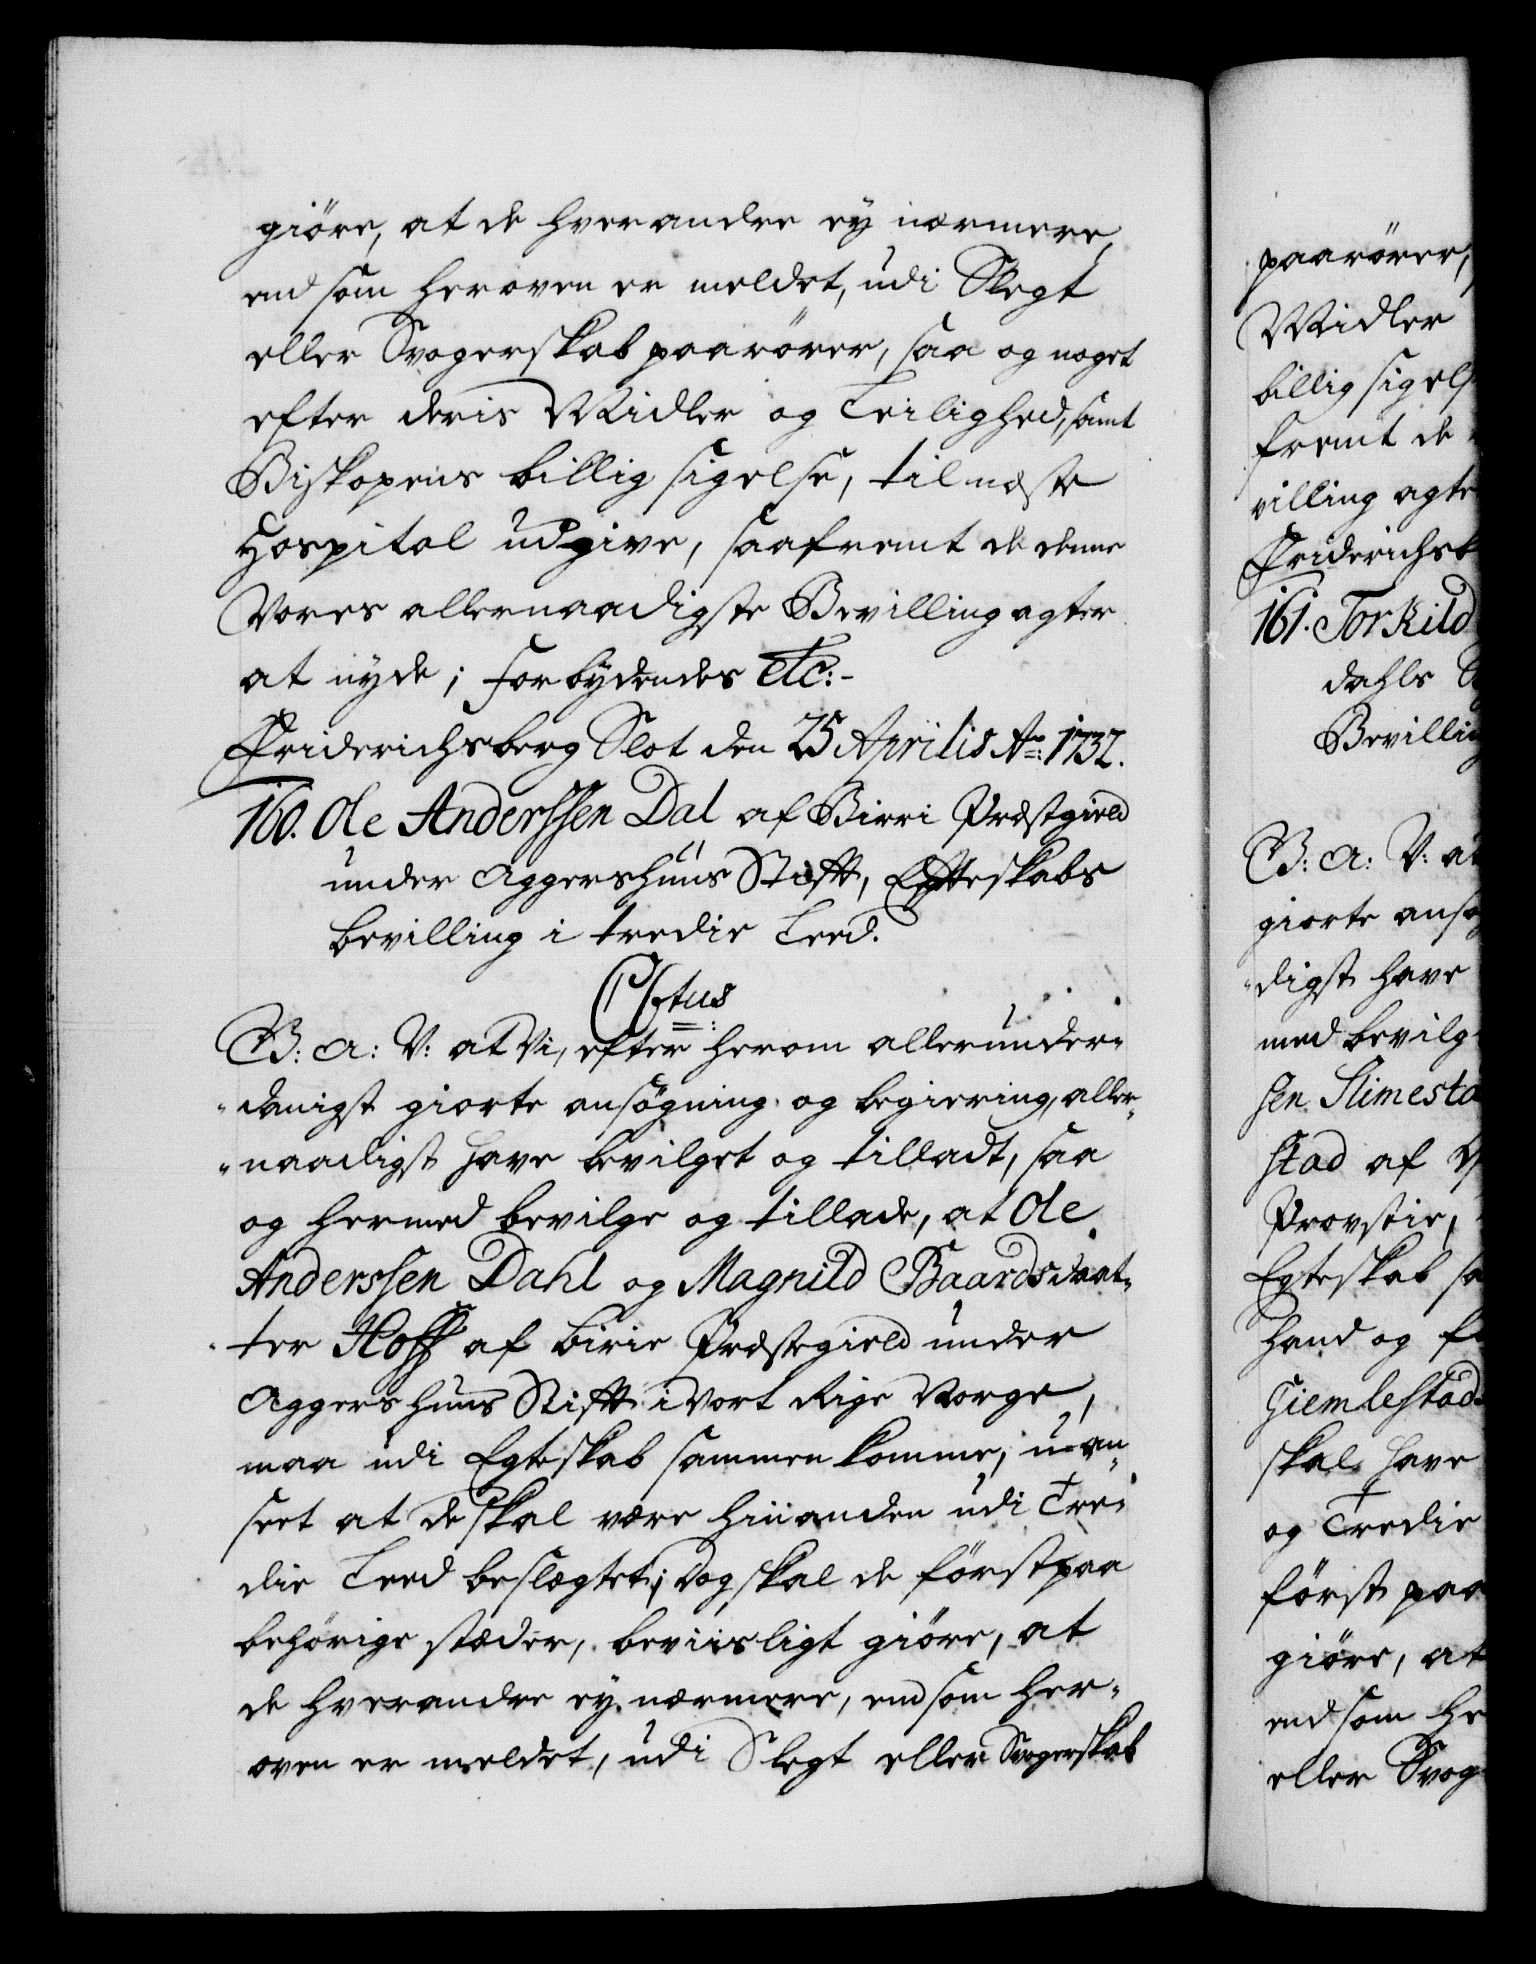 giöre, at de hverandre ey nærmere,
end som heroven er meldet, udi Slegt
eller Svogerskab paarörer, saa og noget
efter deris Midler og Leilighed, samt
Biskopens billig sigelse, til næste
Hospital udgive, saafremt de denne
Vores allernaadigste Bevilling agter
at nyde; forbydendes etc:-
Friderichsberg Slot den 25 Aprilis Ao: 1732.
160. Ole Anderssen Dal af Birri Præstgield
under Aggershuus Stift, Egteskabs
bevilling i tredie Leed.
C6tus
G: A: V: at Vi, efter herom allerunder=
=danigst giorte ansögning og begiering, aller=
=naadigst have bevilget og tilladt, saa
og hermed bevilge og tillade, at Ole
Anderssen Dahl og Magnild Baardsdaat=
=ter Hoff af Birie Præstegield under
Aggershuus Stift i Vort Rige Norge,
maa udi Egteskab sammen komme, uan=
seet at de skal være hinanden udi Tre=
die Leed beslægtet; Dog skal de först paa
behörige stæder, beviisligt giöre, at
de hverandre ey nærmere, end som her=
oven er meldet, udi Slegt eller Svogerskab
paarörer,
Midler
billig sigelse
fremt de
villing agte
Friderichsb
161. Torkild
dahls
Bevilling
G: A: V: at
giorte ansö
=digst have
med bevilg
sen Slimesta
stad af
Provstie,
Egteskab sa
hand og
Giemlestad
skal have
og Tredie
först paa
giöre, at
end som he
eller Svog